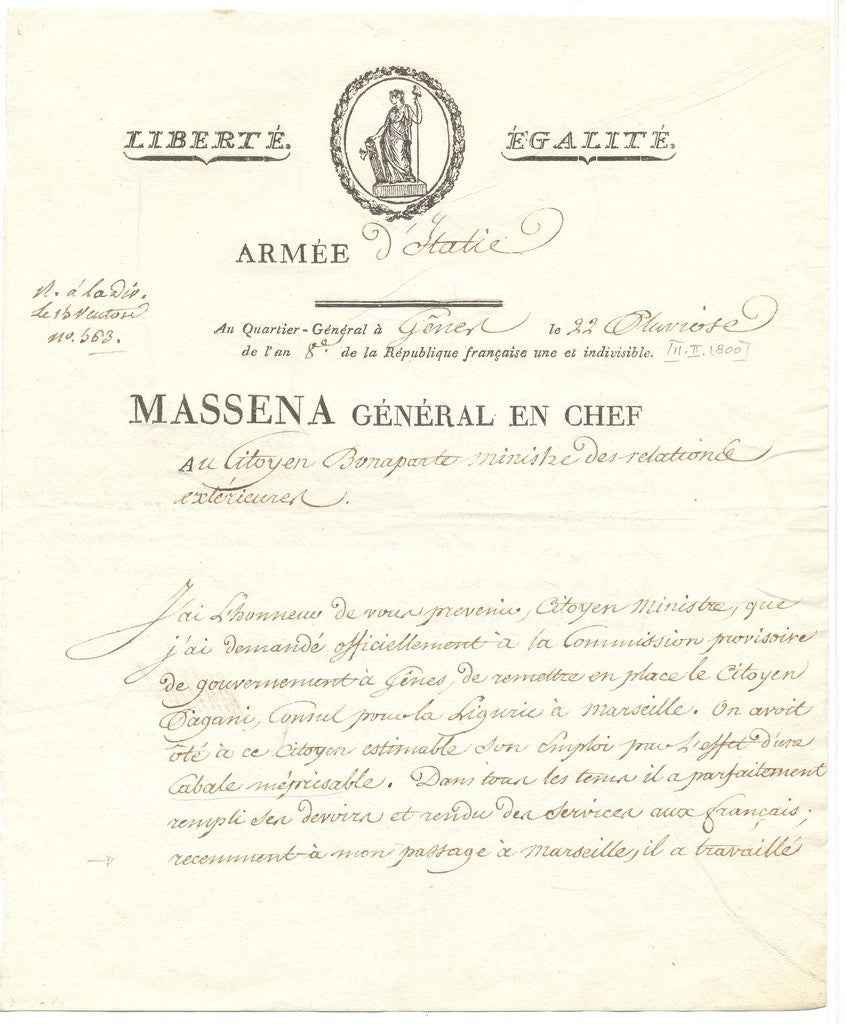 LIBERTÉ.
ÉGALITÉ.
ARMÉE d'Italie
R. à la Div.
Le 15 Ventose
no. 563.
Au Quartier-Général à Gênes le 22 Pluviose
de l'an 8e. de la République française une et indivisible. [11.II.1800]
MASSENA GÉNÉRAL EN CHEF
Au Citoyen Bonaparte ministre des relations
extérieures.
J'ai L'honneur de vous prevenir, Citoyen Ministre, que
j'ai demandé officiellement à la Commission provisoire
de gouvernement à Gênes, de remettre en place le Citoyen
Pagani, Consul pour la Ligurie à Marseille. On avoit
ôté à ce Citoyen estimable son Emploi par L'effet d'une
Cabale méprisable. Dans tous les tems il a parfaitement
rempli ses devoirs et rendu des services aux français;
recemment à mon passage à Marseille, il a travaillé